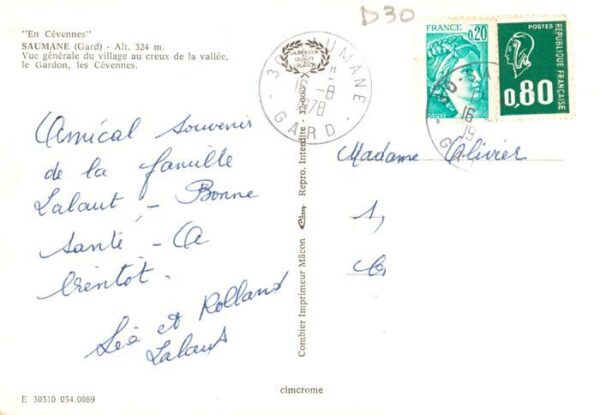 "En Cévennes"
SAUMANE (Gard) - Alt. 324 m.
Vue générale du village au creux de la vallée,
le Gardon, les Cévennes.
D30
FRANCE
0,20
POSTES
0,80
REPUBLIQUE FRANÇAISE
30 SAUMANE
GARD
Amical souvenir
de la famille
Lalaut - Bonne
santé - A
bientôt.
Léa et Rolland
Lalaut
Madame Olivier
Combier Imprimeur Mâcon Cim Repro. Interdite
cimcrome
E 30310 034.0089